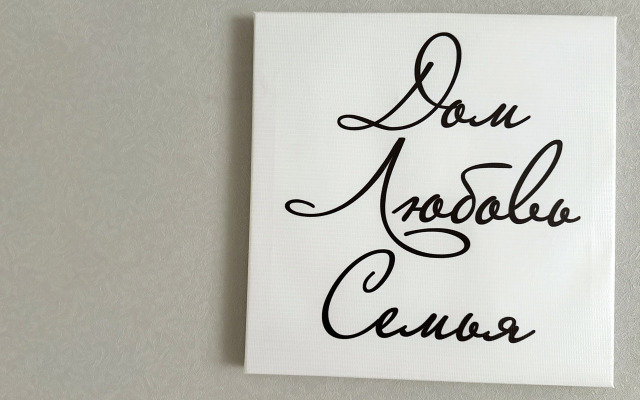 Дом
Любовь
Семья